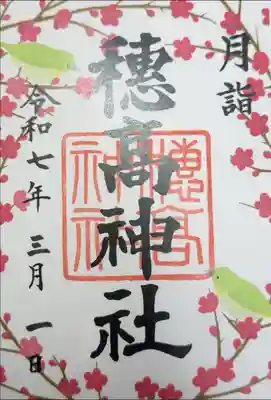 月詣
穂高神社
穂高神社
令和七年三月一日